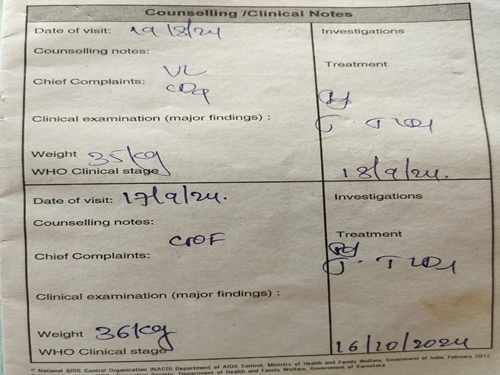 Counselling /Clinical Notes
Date of visit: 19/8/24
Investigations
Counselling notes:
VL
Treatment
Chief Complaints:
Clinical examination (major findings) :
Weight 35kg
WHO Clinical stage
18/9/24.
Date of visit: 17/9/24.
Investigations
Counselling notes:
Treatment
Chief Complaints:
Clinical examination (major findings) :
Weight 36kg
WHO Clinical stage
16/10/2024
National AIDS Control Organization (NACO) Department of AIDS Control, Ministry of Health and Family Welfare, Government of India, February 2012.
Department of Health and Family Welfare, Government of Karnataka